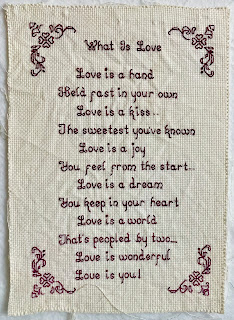 What Is Love
Love is a hand
Held fast in your own
Love is a kiss..
The sweetest you've known
Love is a joy
You feel from the start..
Love is a dream
You keep in your heart
Love is a world
That's peopled by two...
Love is wonderful
Love is you!